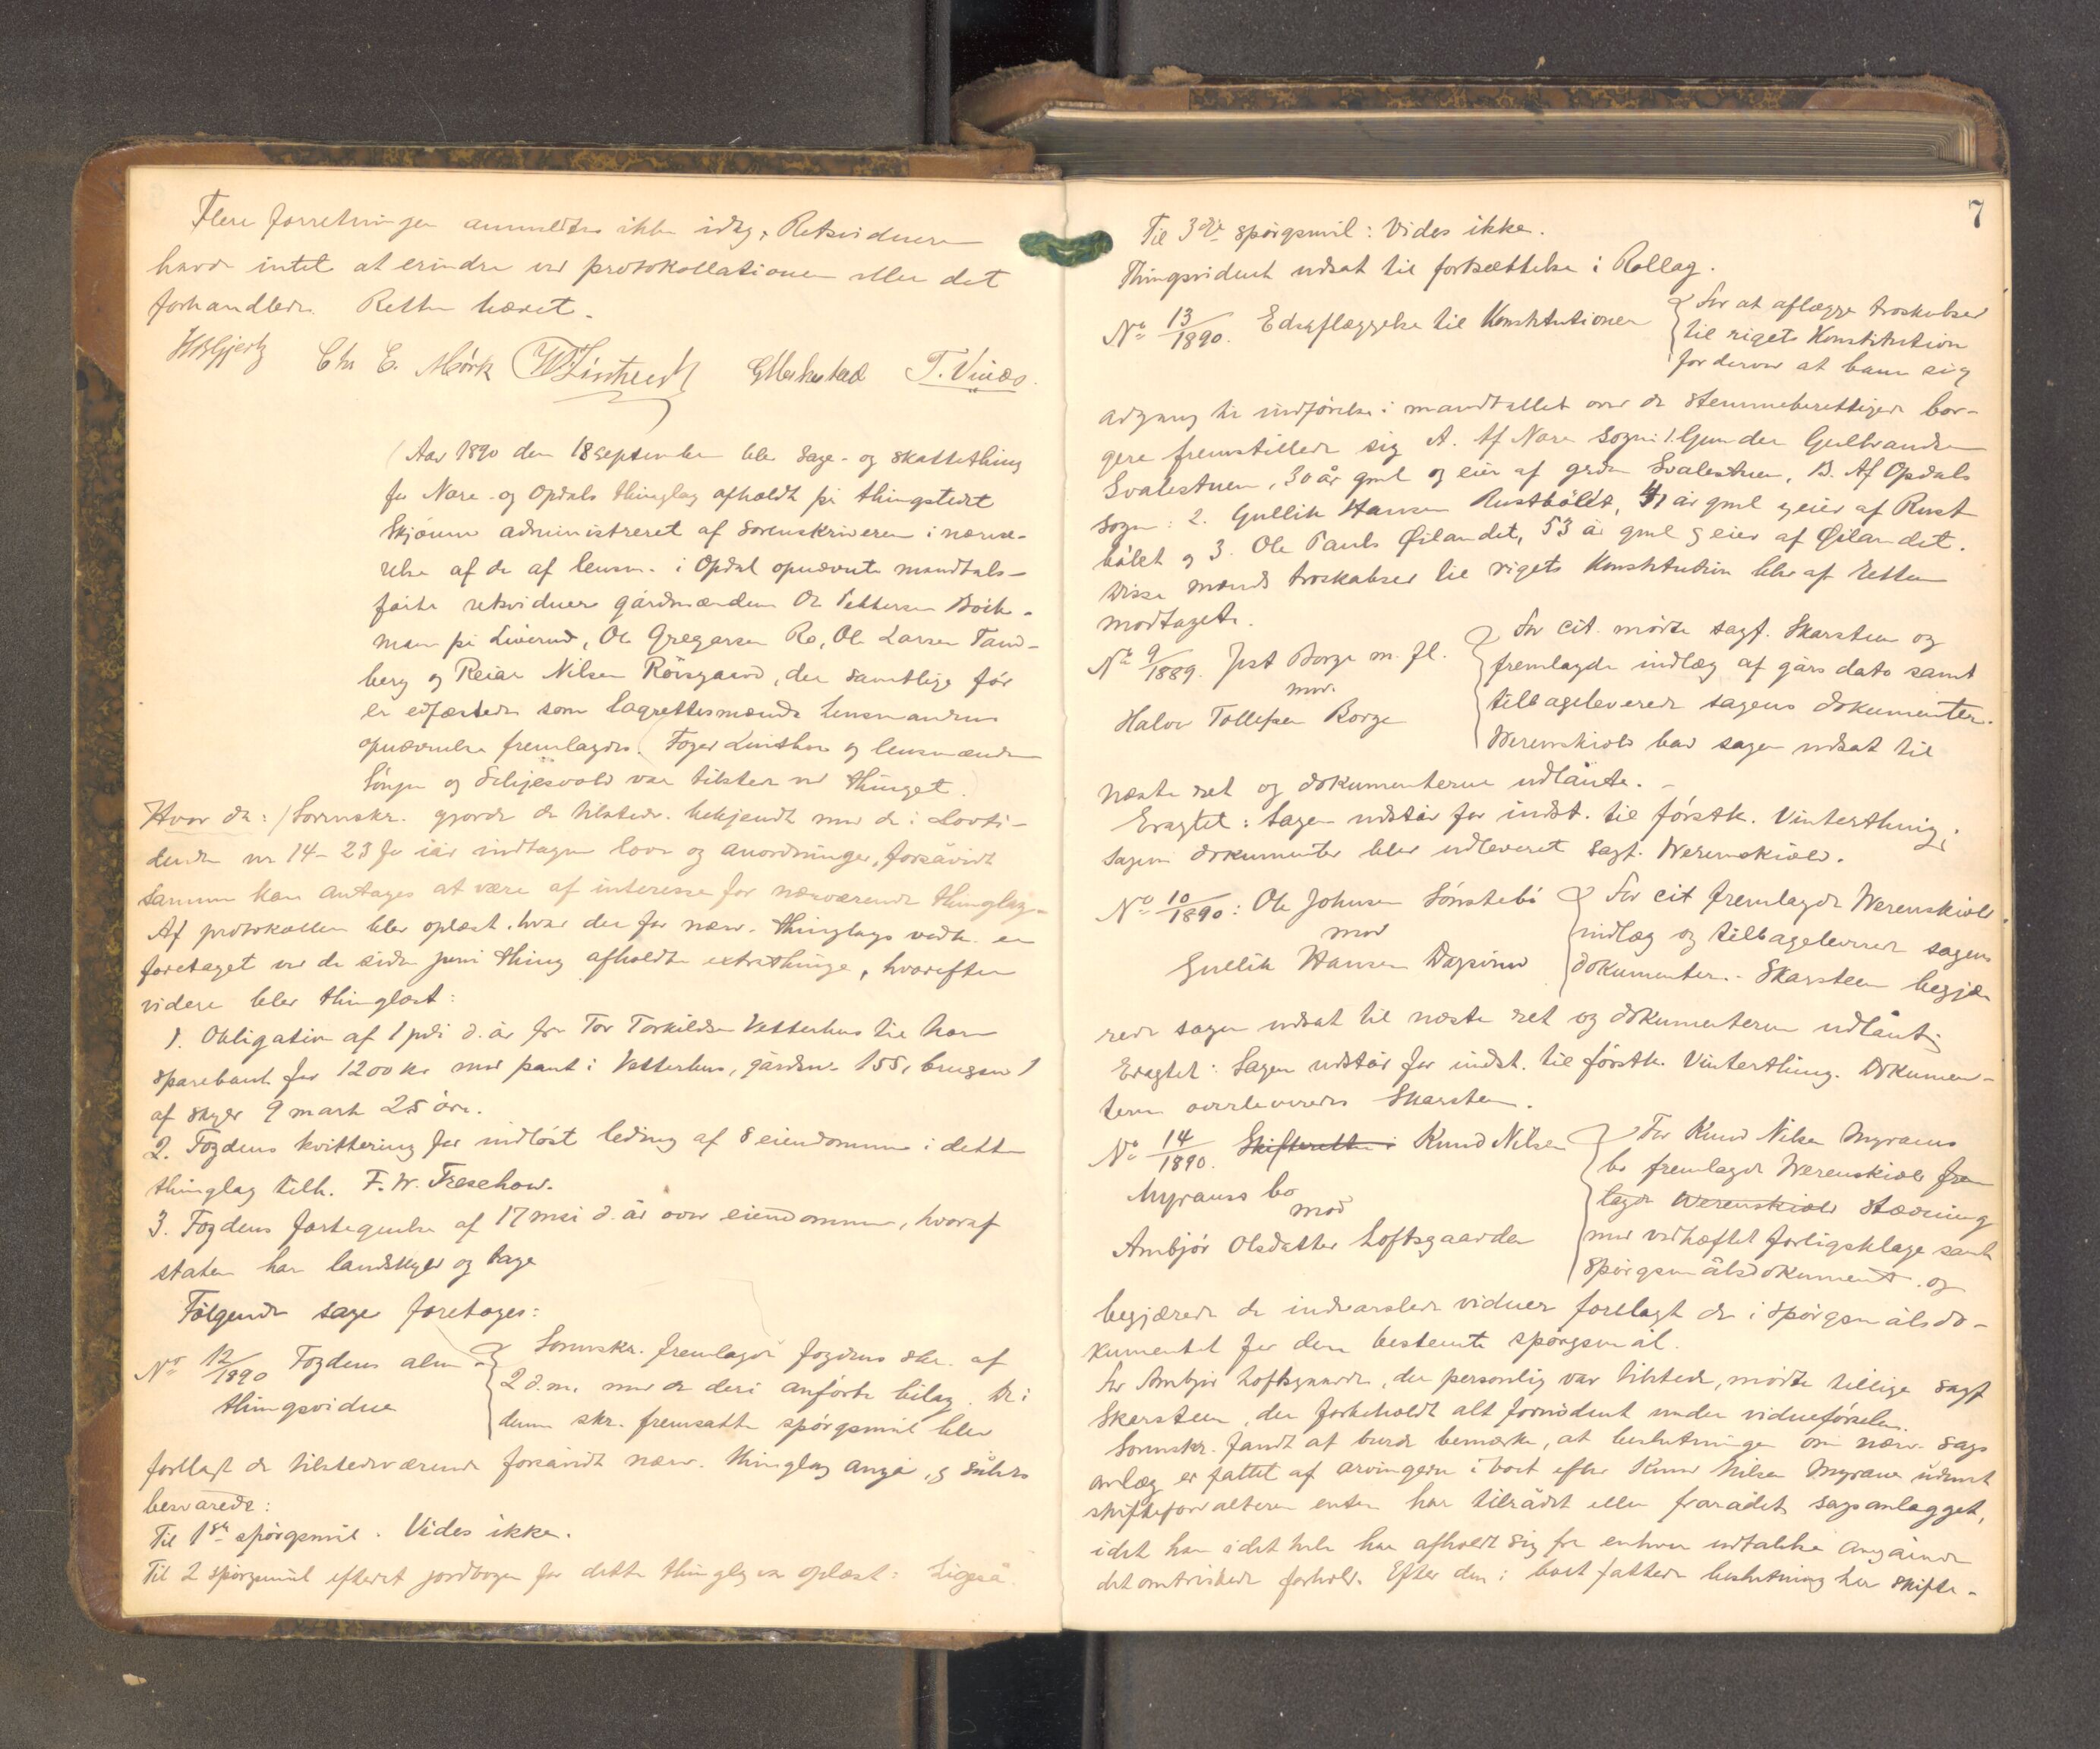 Flere forretninger anmeldtes ikke idag. Retsvidnerne
havde intet at erindre ved protokollationen eller det
forhandlede. Retten hævet.
Chr E. Mörk T. Vinæs.
Aar 1890 den 18 september blev Sage- og skattething
for Nore- og Opdals thinglag afholdt på thingstedet
Skjönne administreret af sorenskriveren i nærvæ-
relse af de af lensm. i Opdal opnævnte mandtals-
förte retsvidner gårdmændene Ole Pettersen
på Liverud, Ole Gregersen Ro, Ole Larsen Tand-
berg og Reiar Nilsen Röisgaard, der samtlige för
er edfæstede som lagrettesmænd. Lensmandens
opnævnelse fremlagdes. Foged og lensmændene
og var tilstede ved thinget.
Hvor da: Sorenskr. gjorde de tilstedev. bekjendt med de i Lovti-
dende nr. 14-23 for iår indtagne love og anordninger, forsåvidt
samme kan antages at være af interesse for nærværende thinglag.
Af protokollen blev oplæst hvad der for nærv. thinglags vedk. er
foretaget ved de siden juni thing afholdte extrathinge, hvorefter
videre blev thinglæst:
1. Obligation af 1 juli d. år fra Tov Torkildsen Vetterhus til Nore
sparebank for 1200 kr med pant i Vetterhus, gårdsn. 155, brugsn 1
af skyld 9 mark 25 öre.
2. Fogdens kvittering for indlöst leding af 8 eiendomme i dette
thinglag tilh. F. W. Treschow.
3. Fogdens fortegnelse af 17 mai d. år over eiendomme, hvoraf
staten har landskyld og bage
Fölgende sager foretoges:
No 12/1890 Fogdens alm. { Sorenskr. fremlagde fogdens skr. af
thingsvidne 2 d.m. med de deri anförte bilag. De i
denne skr. fremsatte spörgsmål blev
forelagt de tilstedeværende forsåvidt nærv. thinglag angår, og således
besvarede:
Til 1ste spörgsmål. Vides ikke.
Til 2 spörgsmål efterat jordbogen for dette thinglag var oplæst: Ligeså.
7
Til 3die spörgsmål: Vides ikke.
Thingsvidnet udsat til fortsættelse i Rollag.
No 13/1890. Edsaflæggelse til Konstitutionen { For at aflægge troskabsed
til rigets Konstitution
for derved at bane sig
adgang til indförelse i mandtallet over de stemmeberettigede bor-
gere fremstillede sig A. Af Nore sogn: 1. Gunder Gulbrandsen
Svalestuen, 30 år gml og eier af grdn Svalestuen, B. Af Opdals
sogn: 2. Gullik Hansen Rustbölet, 41 år gml og eier af Rust
bölet og 3. Ole Pauls Öilandet, 53 år gml og eier af Öilandet.
Disse mænds troskabsed til rigets Konstitution blev af retten
modtaget.
No 9/1889. Jøst Borge m. fl. { For cit. mödte sagf. Skarsteen og
mod fremlagde indlæg af gårs dato samt
Halvor Tollefsen Borge tilbageleverede sagens dokumenter.
Werenskiold bad sagen udsat til
næste ret og dokumenterne udlånte. -
Eragtet: Sagen udstår for indst. til förstk. Vinterthing;
sagens dokumenter blev udleveret sagf. Werenskiold.
No 10/1890: Ole Johnsen Sönstebö { For cit fremlagde Werenskiold
mod indlæg og tilbageleverede sagens
Gullik Hansen dokumenter. Skarsteen begjæ
rede sagen udsat til næste ret og dokumenterne udlånt;
Eragtet: Sagen udstår for indst. til förstk. Vinterthing. Dokumen-
terne overleveredes Skarsteen.
No 14/1890. Skifteretten i Knud Nilsen { For Knud Nilsen Myrans
Myranss bo bo fremlagde Werenskiold frem
mod lagde Werenskiold stævning
Ambjör Olsdatter Loftsgaarden med vedhæftet forligsklage samt
spörgsmålsdokument og
begjærede de indvarslede vidner forelagt de i spörgsmålsdo-
kumentet for dem bestemte spörgsmål.
For Ambjör Loftsgaarden, der personlig var tilstede, mödte tillige sagf
Skarsteen, der forbeholdt alt fornödent under vidneförselen.
Sorenskr. fandt at burde bemærke, at beslutningen om nærv. sags
anlæg er fattet af arvingerne i boet efter Knud Nilsen Myrane uden at
skifteforvalteren enten har tilrådet eller frarådet sagsanlægget,
idet han i det hele har afholdt sig fra enhver udtalelse angående
det omtvistede forhold. Efter den i boet fattede beslutning har skifte-